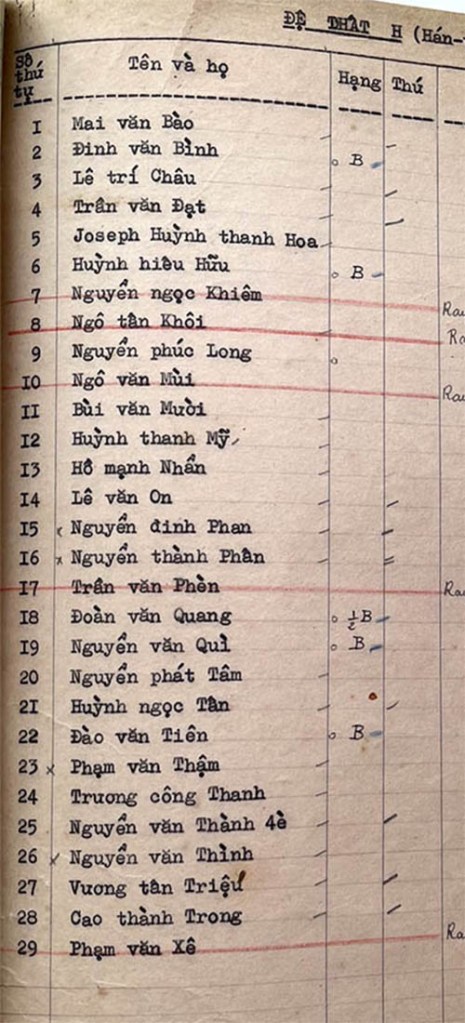 ĐỆ THẤT H (Hán-
Số thứ tự Tên và họ Hạng Thú
I Mai văn Bào
2 Đinh văn Bình B
3 Lê trí Châu
4 Trần văn Đạt
5 Joseph Huỳnh thanh Hoa
6 Huỳnh hiếu Hữu B
7 Nguyễn ngọc Khiêm Ra
8 Ngô tấn Khôi Ra
9 Nguyễn phúc Long
IO Ngô văn Mùi Ra
II Bùi văn Mười
I2 Huỳnh thanh Mỹ
I3 Hồ mạnh Nhẩn
I4 Lê văn On
I5 Nguyễn đinh Phan
I6 Nguyễn thành Phân
I7 Trần văn Phèn Ra
I8 Đoàn văn Quang ½ B
I9 Nguyễn văn Quì B
20 Nguyễn phát Tâm
2I Huỳnh ngọc Tân
22 Đào văn Tiên B
23 x Phạm văn Thậm
24 Trương công Thanh
25 Nguyễn văn Thành 4è
26 x Nguyễn văn Thình
27 Vương tấn Triệu
28 Cao thành Trong
29 Phạm văn Xê Ra